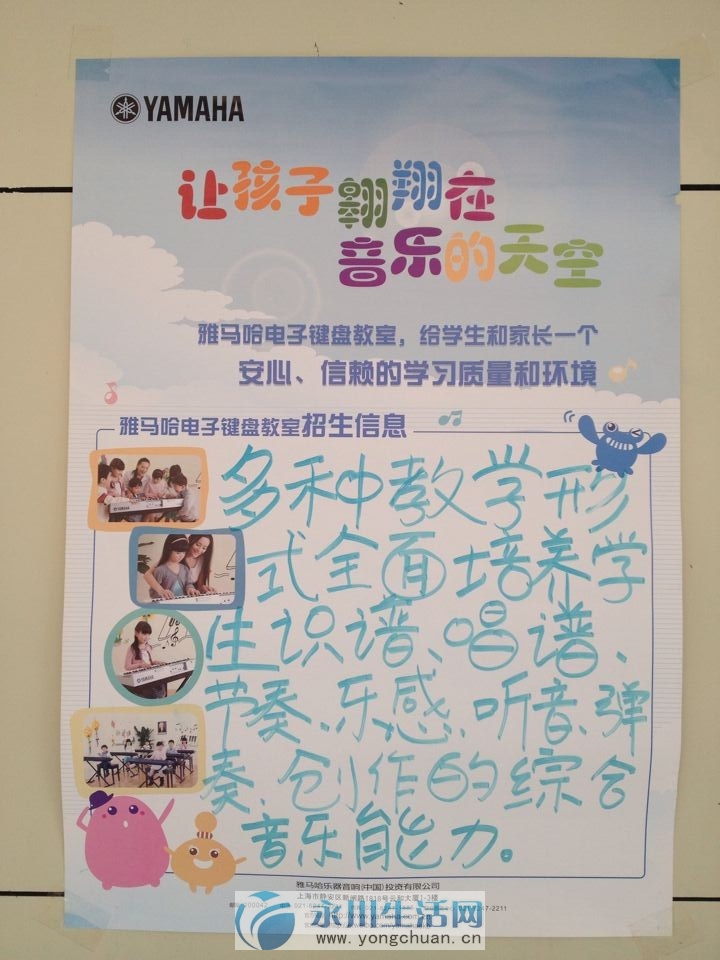 YAMAHA
让孩子翱翔在
音乐的天空
雅马哈电子键盘教室，给学生和家长一个
安心、信赖的学习质量和环境
雅马哈电子键盘教室招生信息
多种教学形
式全面培养学
生识谱、唱谱、
节奏、乐感、听音、弹
奏、创作的综合
音乐能力。
雅马哈乐器音响(中国)投资有限公司
上海市静安区新闸路1818号云和大厦1-3楼
永川生活网
www.yongchuan.cn